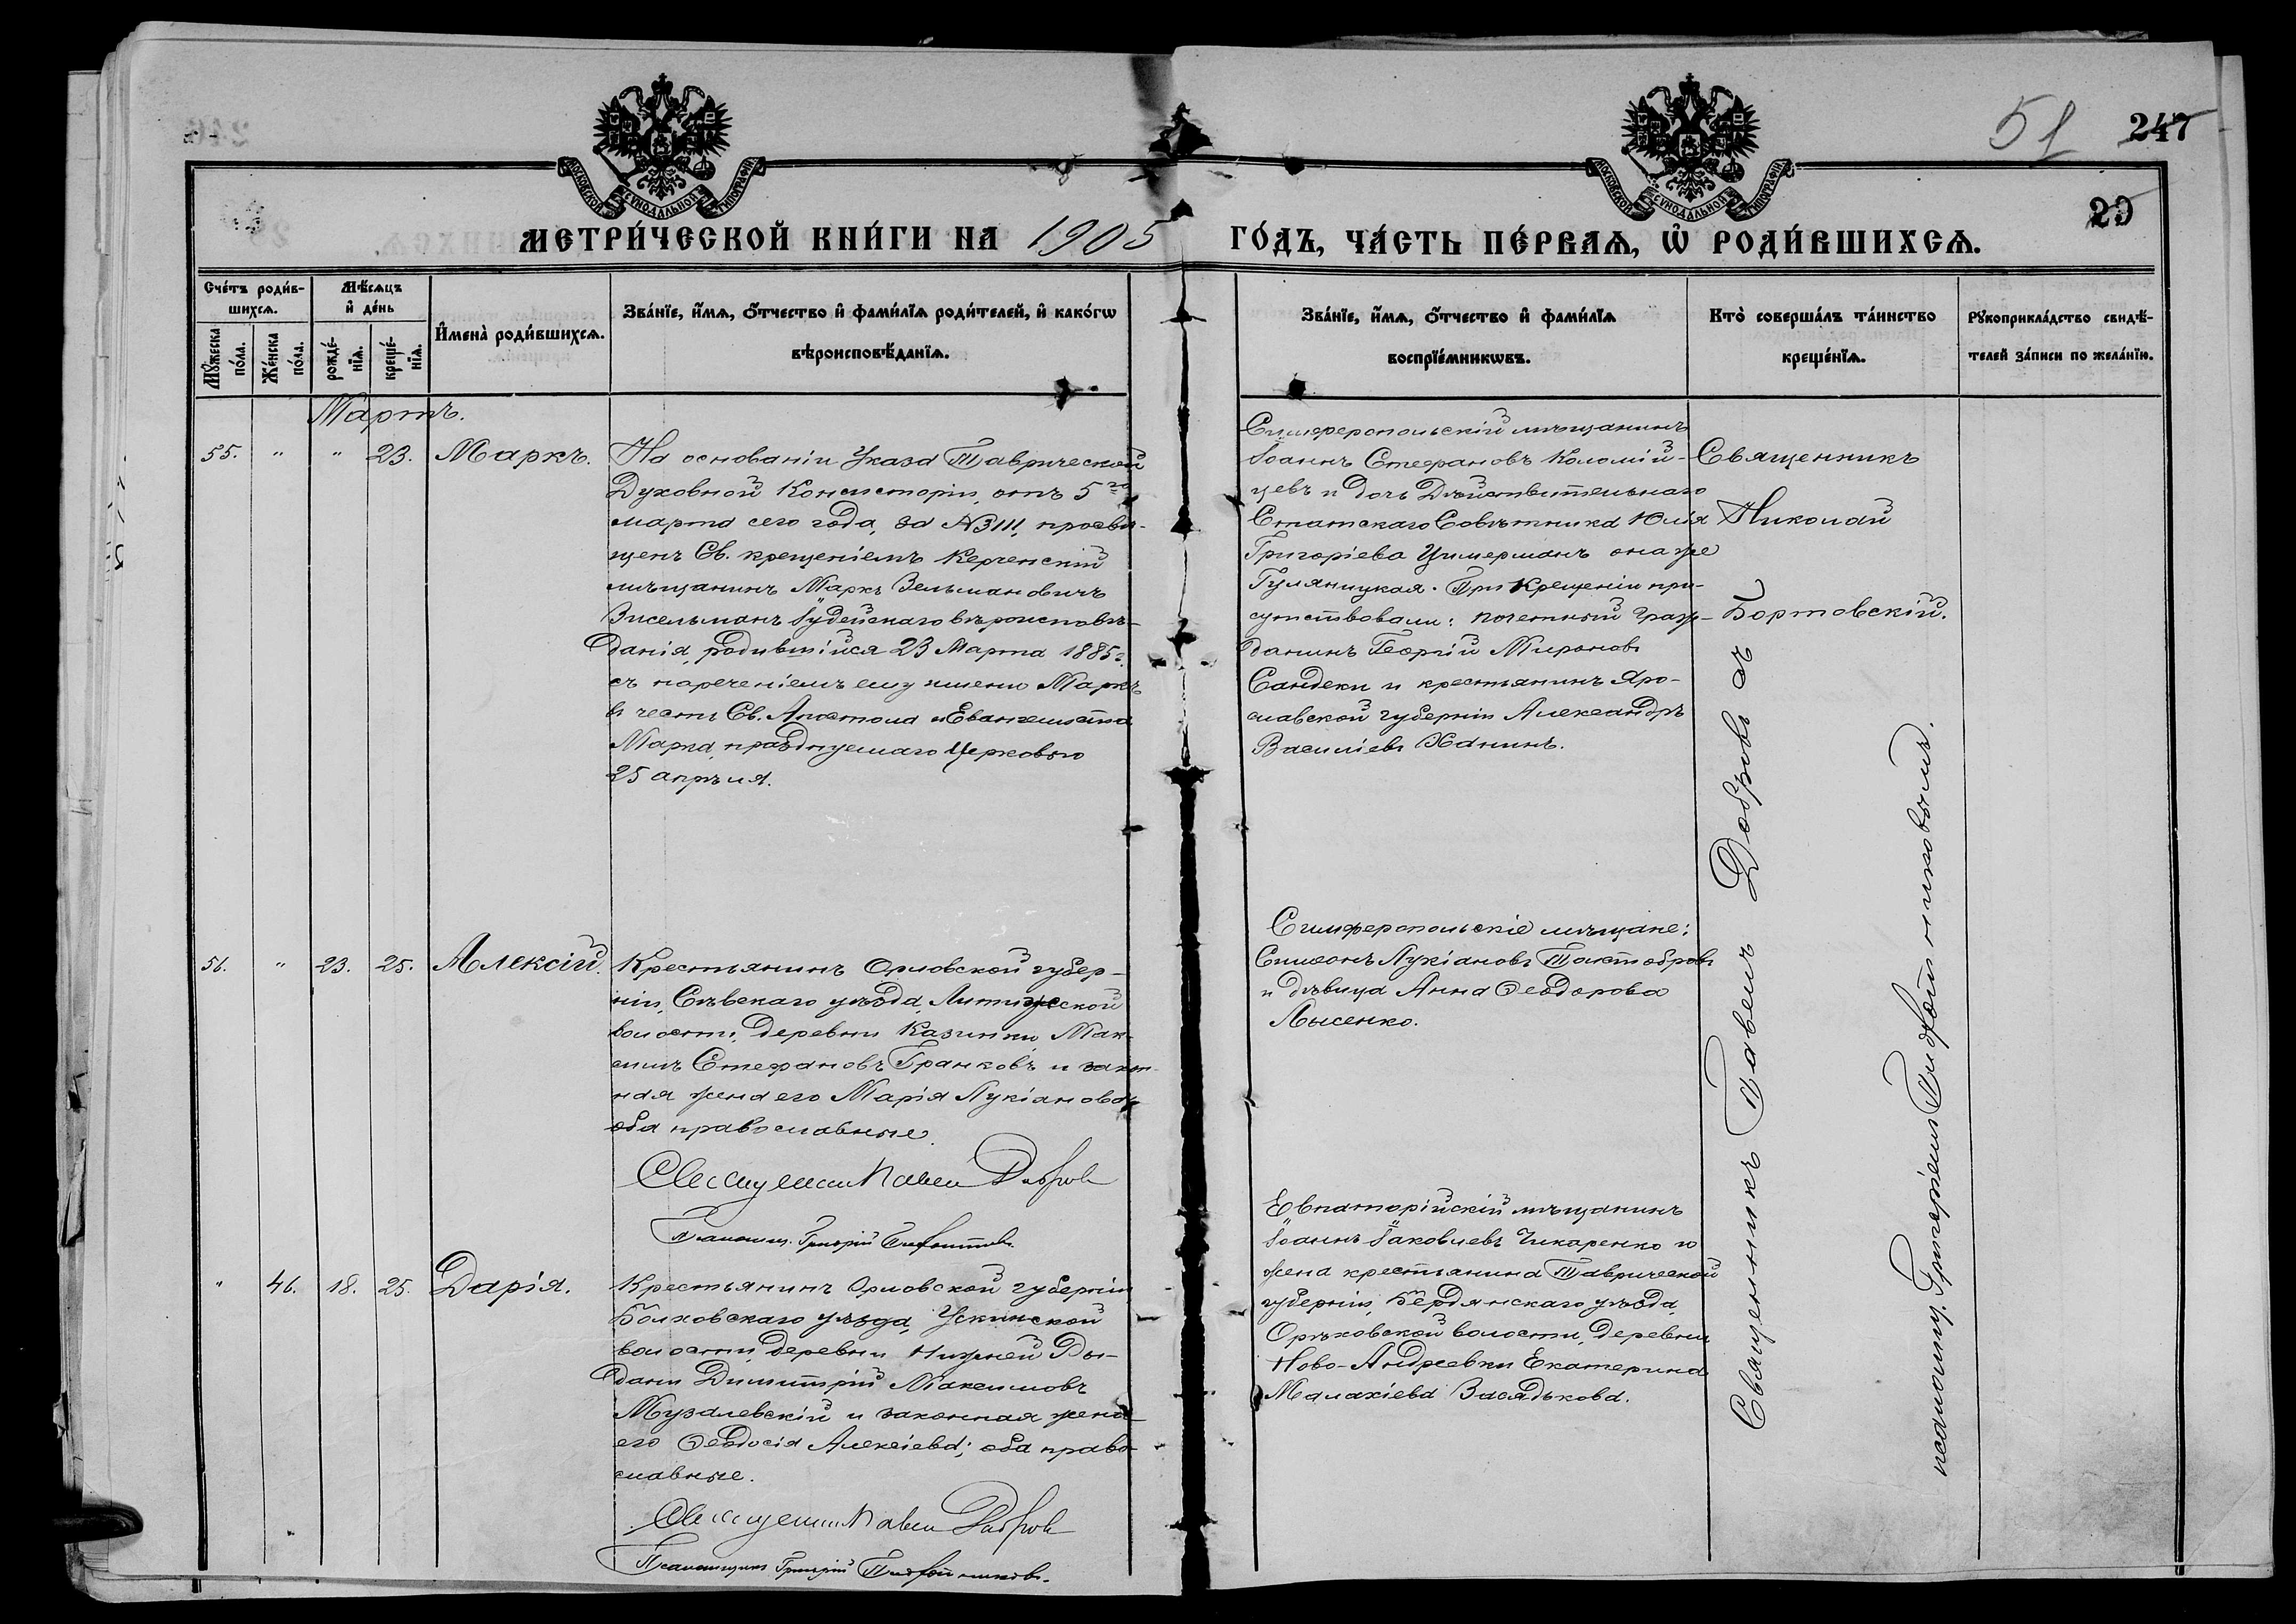 51 247
29
МОСКОВСКОЙ СѴНОДАЛЬНОЙ ТИПОГРАФІИ
МОСКОВСКОЙ СѴНОДАЛЬНОЙ ТИПОГРАФІИ
МЕТРИ́ЧЕСКОЙ КНИ́ГИ НА 1905 ГО́ДЪ, ЧА́СТЬ ПЕ́РВАѦ, Ѡ҆ РОДИ́ВШИХСѦ.
Сче́тъ роди́в-
шихсѧ.
Мꙋ́жеска
по́ла.
Же́нска
по́ла.
Мѣ́сѧцъ
и҆ де́нь
рожде́-
нїѧ.
креще́-
нїѧ.
И҆мена̀ роди́вшихсѧ.
Зва́нїе, и҆́мѧ, ѻ҆́тчество и҆ фами́лїѧ роди́телей, и҆ како́гѡ
вѣроисповѣ́данїѧ.
Зва́нїе, и҆́мѧ, ѻ҆́тчество и҆ фами́лїѧ
воспрїе́мникѡвъ.
Кто̀ соверша́лъ та́инство
креще́нїѧ.
Рꙋкоприкла́дство свидѣ́-
телей за́писи по жела́нїю.
Мартъ.
55. " " 23. Маркъ.
На основаніи Указа Таврической
Духовной Консисторіи, отъ 5го
марта сего года, за № 3111, просвѣ-
щенъ Св. крещеніемъ Керченскій
мѣщанинъ Маркъ Зельмановичъ
Зисельманъ Іудейскаго вѣроисповѣ-
данія, родившійся 23 Марта 1885 г.
съ нареченіемъ ему имени Маркъ
въ честь Св. Апостола и Евангелиста
Марка, празднуемаго Церковью
25 апрѣля.
Симферопольскій мѣщанинъ
Іоаннъ Стефановъ Коломій-
цевъ и дочь Дѣйствительнаго
Статскаго Совѣтника Юлія
Григоріева Цимерманъ она же
Гуляницкая. При крещеніи при-
сутствовали: почетный граж-
данинъ Георгій Мироновъ
Сандеки и крестьянинъ Яро-
славской губерніи Александръ
Василіевъ Ханинъ.
Священникъ
Николай
Бортовскій.
56. " 23. 25. Алексій.
Крестьянинъ Орловской губер-
ніи, Сѣвскаго уѣзда, Литижской
волости, деревни Казинки Мак-
симъ Стефановъ Гранковъ и закон-
ная жена его Марія Лукіанова,
оба православные.
Священникъ Павелъ Добровъ
Псаломщ. Григорій
Симферопольскіе мѣщане:
Симеонъ Лукіановъ
и дѣвица Анна Ѳеодорова
Лысенко.
" 46. 18. 25. Дарія.
Крестьянинъ Орловской губерніи
Болховскаго уѣзда,
волости, деревни Нижней Ры-
дани Димитрій Максимовъ
Музалевскій и законная жена
его Ѳеодосія Алексіева; оба право-
славные.
Священникъ Павелъ Добровъ
Псаломщикъ Григорій
Евпаторійскій мѣщанинъ
Іоаннъ Іаковлевъ Чикаренко и
жена крестьянина Таврической
губерніи, Бердянскаго уѣзда,
Орѣховской волости, деревни
Ново-Андреевки Екатерина
Малахіева Засядькова.
Священникъ Павелъ Добровъ съ
псаломщ. Григоріемъ